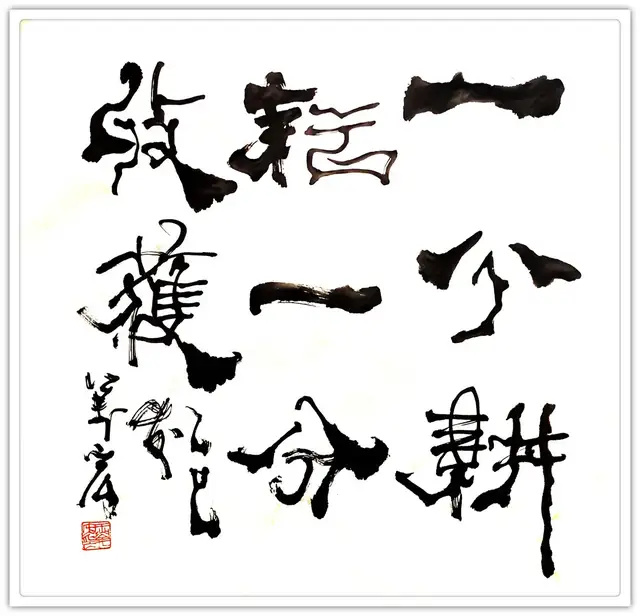 一分耕
耘一分
收獲
乙巳